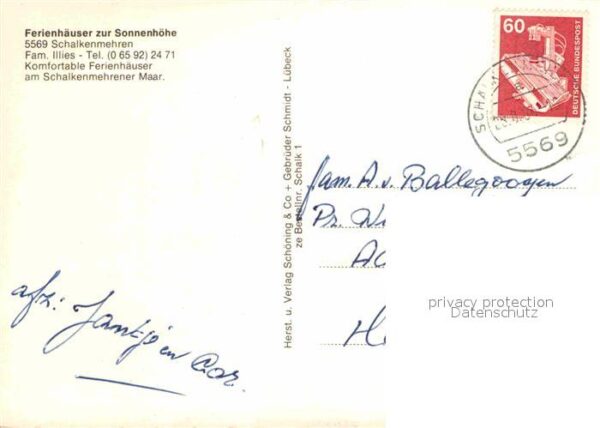 Ferienhäuser zur Sonnenhöhe
5569 Schalkenmehren
Fam. Illies - Tel. (0 65 92) 24 71
Komfortable Ferienhäuser
am Schalkenmehrener Maar.
Herst. u. Verlag Schöning & Co + Gebrüder Schmidt - Lübeck
ze Bestellnr. Schalk 1
60
DEUTSCHE BUNDESPOST
SCHAL
5569
fam. A. v. Ballegooyen
Pr. W
H
privacy protection
Datenschutz
afz: Jantje en Cor.